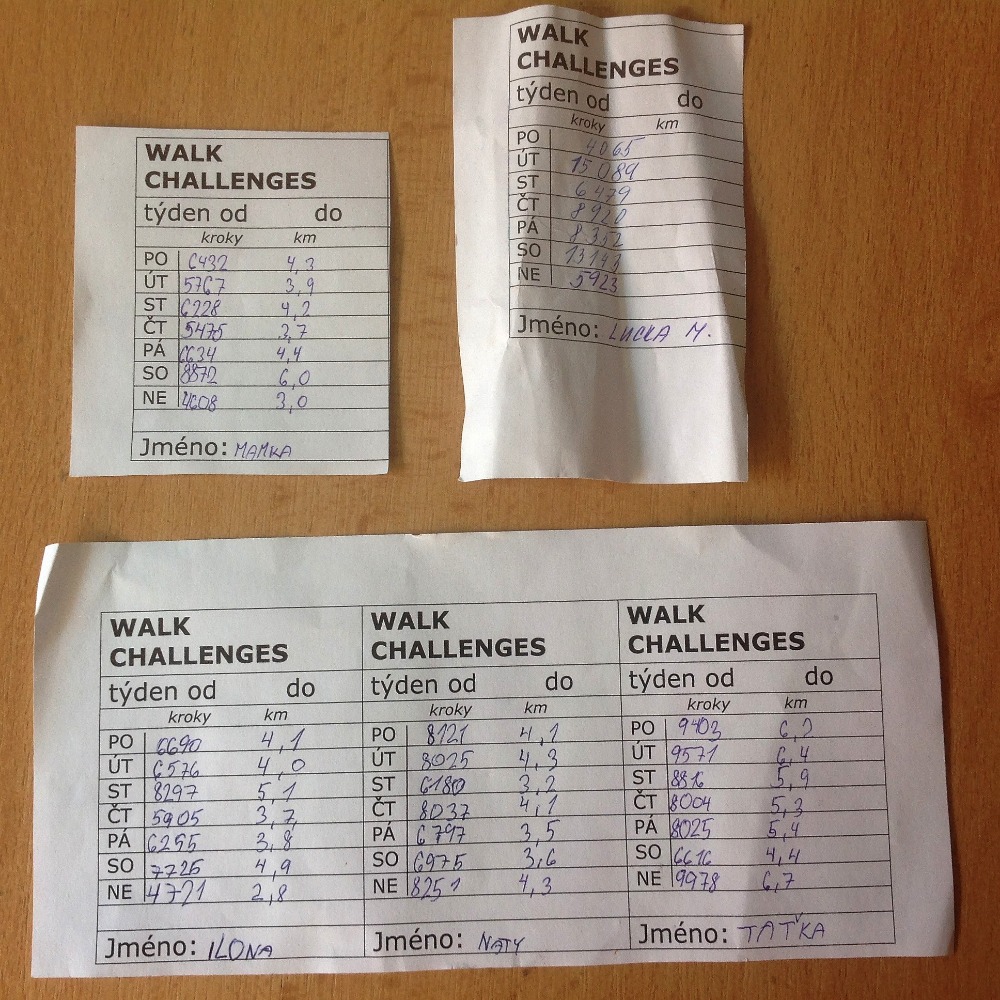 WALK
CHALLENGES
týden od do
kroky km
PO 6432 4,3
ÚT 5767 3,9
ST 6228 4,2
ČT 5475 3,7
PÁ 6634 4,4
SO 8872 6,0
NE 4608 3,0
Jméno: MAMKA
WALK
CHALLENGES
týden od do
kroky km
PO 4065
ÚT 15089
ST 6479
ČT 8920
PÁ 8352
SO
NE 5923
Jméno: LUCKA M.
WALK
CHALLENGES
týden od do
kroky km
PO 6690 4,1
ÚT 6576 4,0
ST 8297 5,1
ČT 5905 3,7
PÁ 6255 3,8
SO 7725 4,9
NE 4721 2,8
Jméno: ILONA
WALK
CHALLENGES
týden od do
kroky km
PO 8121 4,1
ÚT 8025 4,3
ST 6180 3,2
ČT 8037 4,1
PÁ 6797 3,5
SO 6975 3,6
NE 8251 4,3
Jméno: NATY
WALK
CHALLENGES
týden od do
kroky km
PO 9403 6,2
ÚT 9571 6,4
ST 8816 5,9
ČT 8004 5,3
PÁ 8025 5,4
SO 6616 4,4
NE 9978 6,7
Jméno: TAŤKA